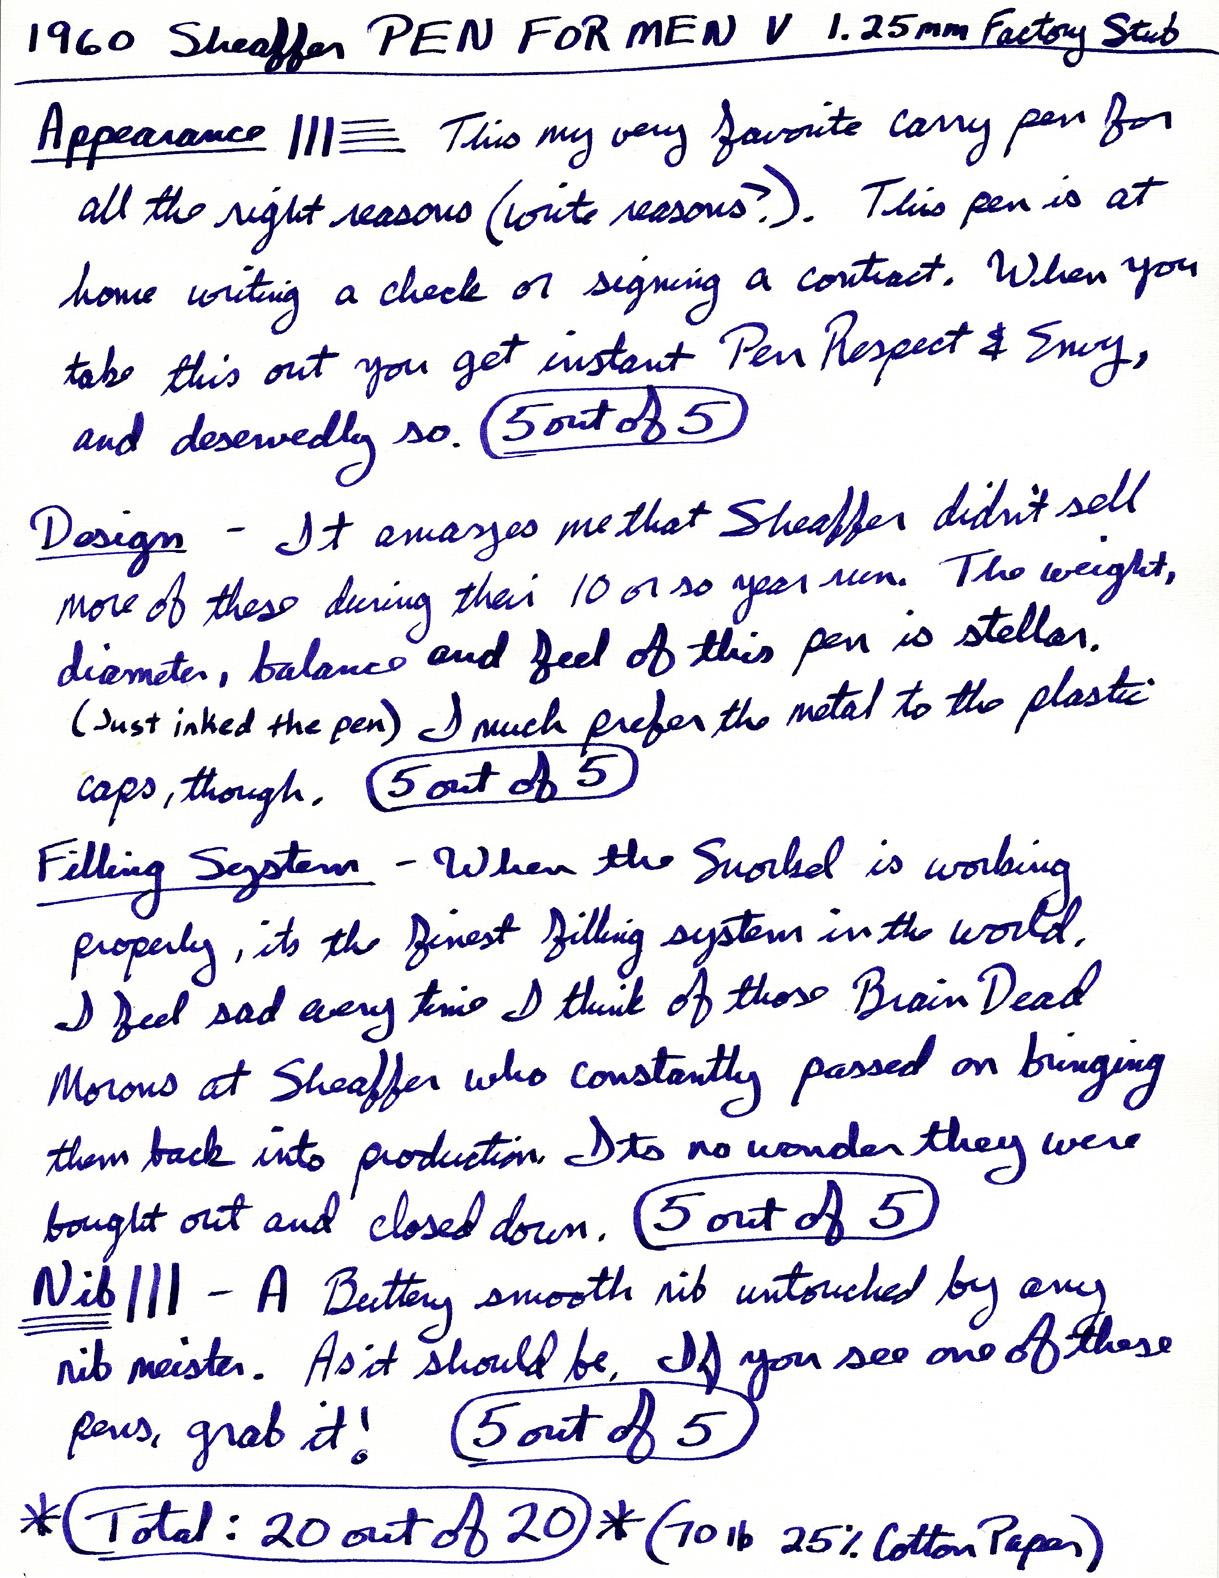 1960 Sheaffer PEN FOR MEN V 1.25mm Factory Stub
Appearance This my very favorite carry pen for
all the right reasons (write reasons?). This pen is at
home writing a check or signing a contract. When you
take this out you get instant Pen Respect & Envy,
and deservedly so. 5 out of 5
Design - It amazes me that Sheaffer didn't sell
more of these during their 10 or so year run. The weight,
diameter, balance and feel of this pen is stellar.
(Just inked the pen) I much prefer the metal to the plastic
caps, though. 5 out of 5
Filling System - When the Snorkel is working
properly, its the finest filling system in the world.
I feel sad every time I think of those Brain Dead
Morons at Sheaffer who constantly passed on bringing
them back into production. Its no wonder they were
bought out and closed down. 5 out of 5
Nib - A Buttery smooth nib untouched by any
nib meister. As it should be. If you see one of these
pens, grab it! 5 out of 5
* Total: 20 out of 20 * (70 lb 25% Cotton Paper)